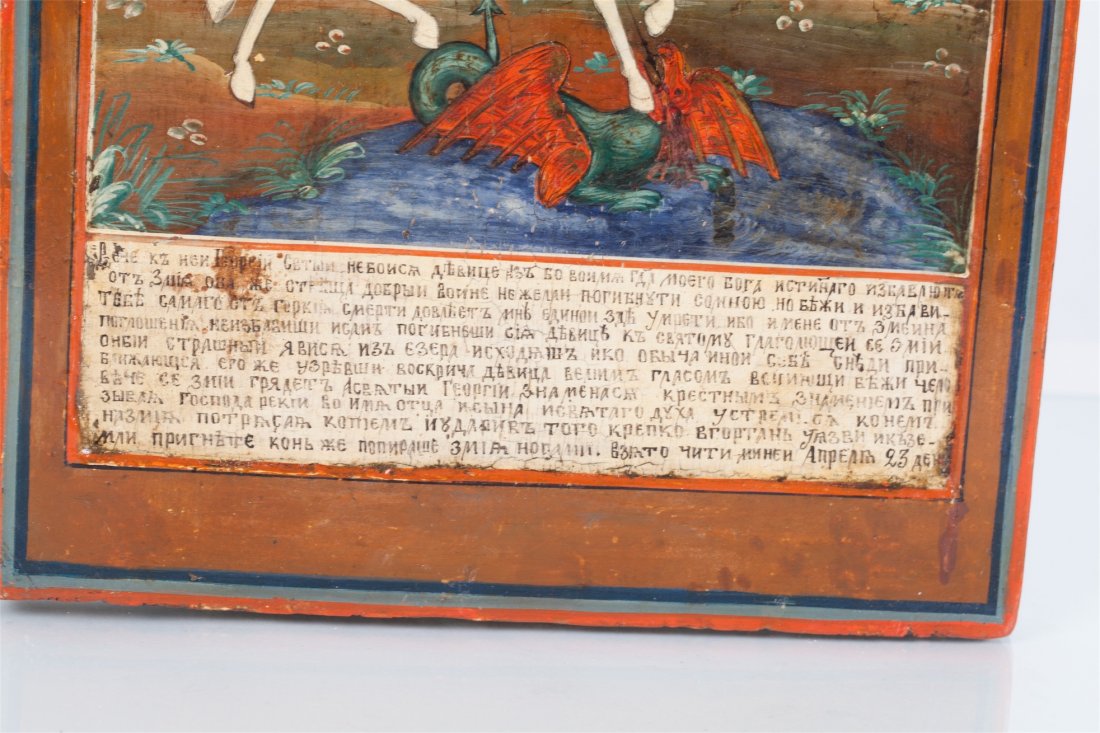 Рече къ неи Георгіи Свтыи не боися дѣвице азъ бо во имя гда моего бога истинаго избавлю тя
отъ Змія она же отвѣща добрыи воине не желаи погибнути со мною но бѣжи и избави
тебѣ самаго отъ горкія смерти довлѣетъ мнѣ единои здѣ умрети ибо и мене отъ змеина
поглощенія не избавиши и самъ погибнеши сія дѣвицѣ къ святому глаголющеи се зміи
оныи страшныи явися изъ езера исходящъ яко обычаинои себѣ снѣди при-
ближающся его же узревши воскрича дѣвица велимъ гласомъ вопиющи бѣжи чело
вѣче се зміи грядетъ А святыи Георгіи знаменася крестнымъ знаменіемъ при
зывая Господа рекіи во имя отца и сына и святаго духа устреми ся конемъ
на змія потрясая копіемъ и ударивъ того крепко в гортань уязви и к зе-
мли пригнѣте конь же попираше змія ногами. взято чити минеи Апреля 23 день